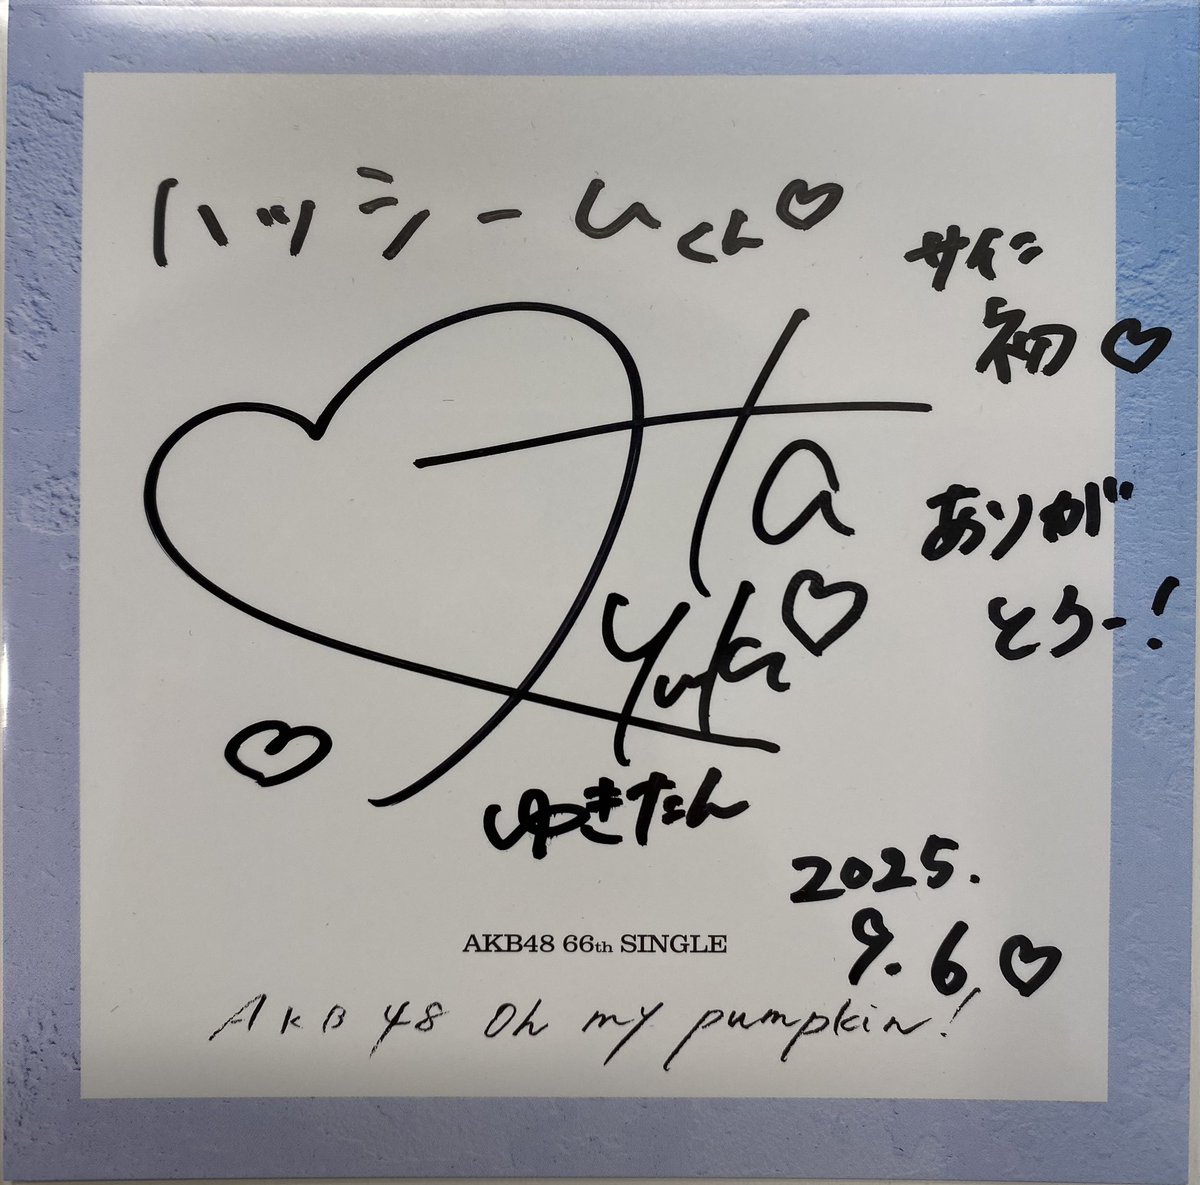 ハッシームくん♡
サイン
初♡
ta
ありが
とうー!
Yuki♡
ゆきたん
2025.
9.6♡
AKB48 66th SINGLE
AKB48 Oh my pumpkin!